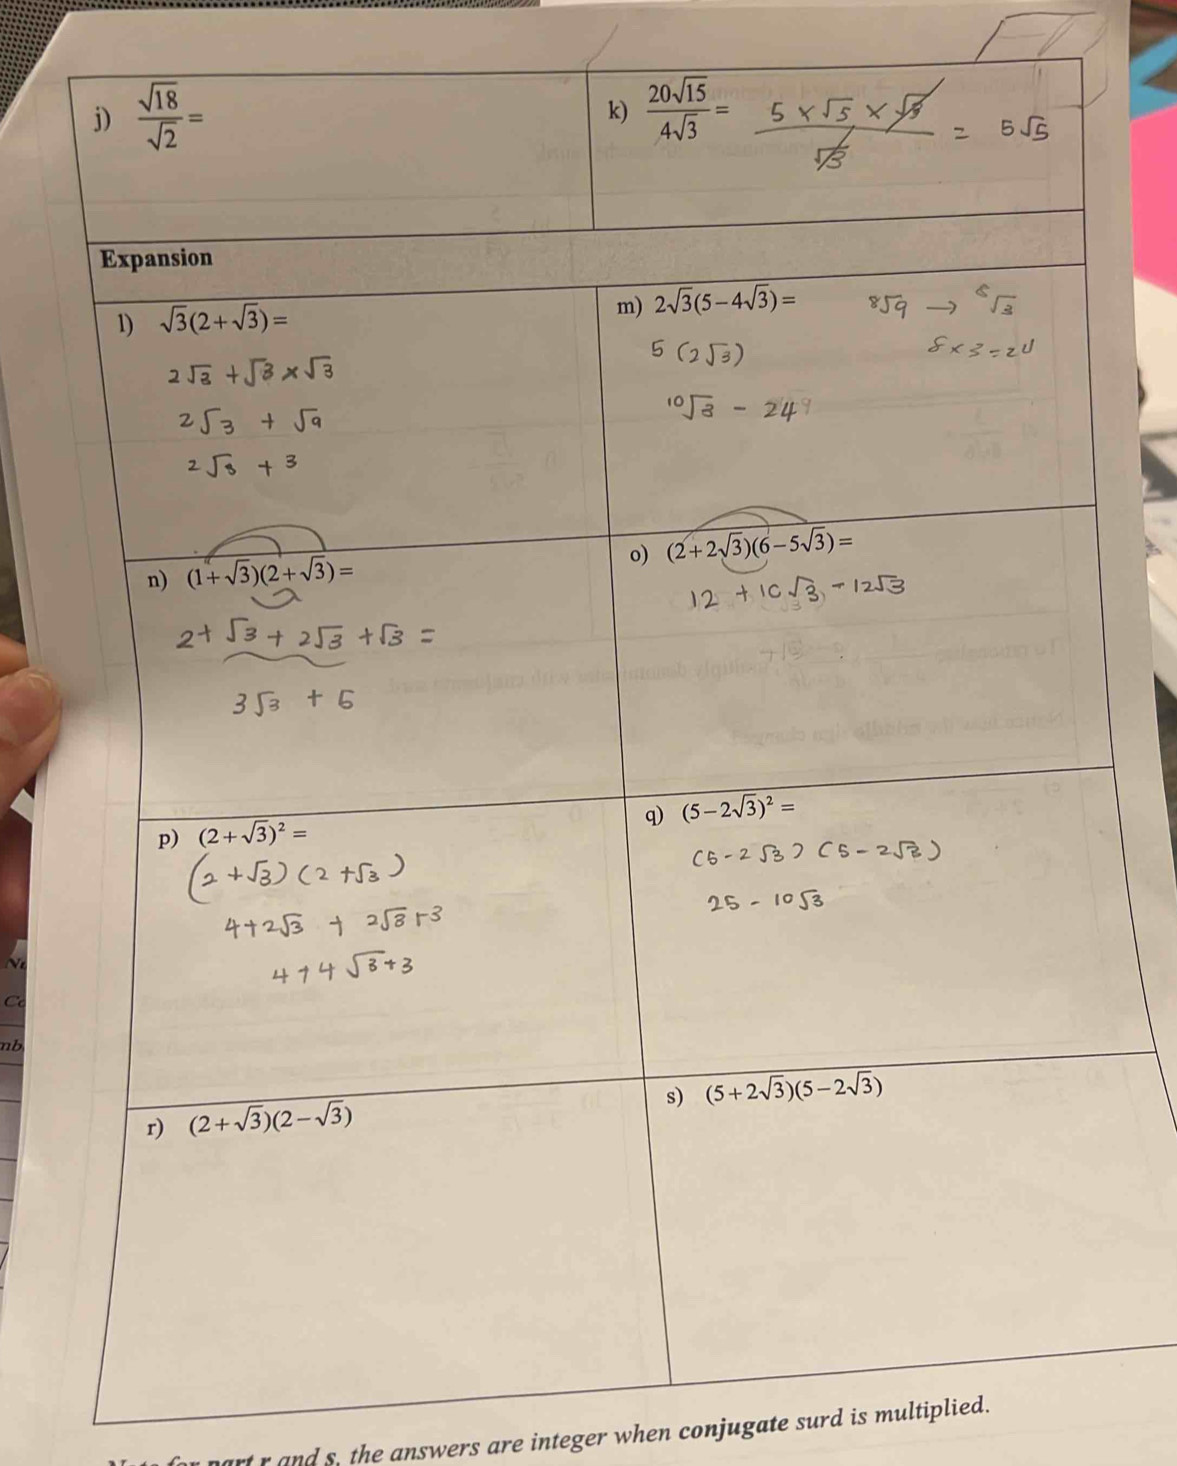 j) √18/√2 =
k) 20√15/4√3 = 5 × √5 × √3/√3 = 5√5
Expansion
l) √3(2+√3)=
2√3 + √3 × √3
2√3 + √9
2√3 + 3
m) 2√3(5−4√3)= 8√9 → 8√3
5 (2√3) 8×3=24
10√3 - 24
n) (1+√3)(2+√3)=
2+ √3 + 2√3 + √3 =
3√3 + 5
o) (2+2√3)(6−5√3)=
12 + 10√3 - 12√3
p) (2+√3)²=
(2+√3)(2+√3)
4+2√3 + 2√3+3
4+4√3+3
q) (5−2√3)²=
(5-2√3)(5-2√3)
25 - 10√3
r) (2+√3)(2−√3)
s) (5+2√3)(5−2√3)
for part r and s, the answers are integer when conjugate surd is multiplied.